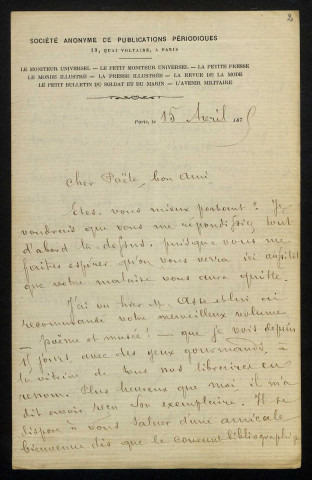 2
SOCIÉTÉ ANONYME DE PUBLICATIONS PÉRIODIQUES
13, QUAI VOLTAIRE, A PARIS
LE MONITEUR UNIVERSEL. — LE PETIT MONITEUR UNIVERSEL. — LA PETITE PRESSE
LE MONDE ILLUSTRÉ. — LA PRESSE ILLUSTRÉE. — LA REVUE DE LA MODE
LE PETIT BULLETIN DU SOLDAT ET DU MARIN. — L'AVENIR MILITAIRE
Paris, le 15 Avril 187
Cher Poète, bon Ami
Êtes-vous mieux portant ? Je
voudrais que vous me répondissiez tout
d'abord là-dessus, puisque vous me
faites espérer qu'on vous verra ici aussitôt
que votre malaise vous aura quitté.
J'ai vu hier M. et lui ai
recommandé votre merveilleux volume
— poème et musée ! — que je vois depuis
15 jours, avec des yeux gourmands, à
la vitrine de tous nos libraires en
renom. Plus heureux que moi il m'a
dit avoir reçu son exemplaire. Il se
dispose à vous saluer d'une amicale
bienvenue dès que le courant bibliographiq